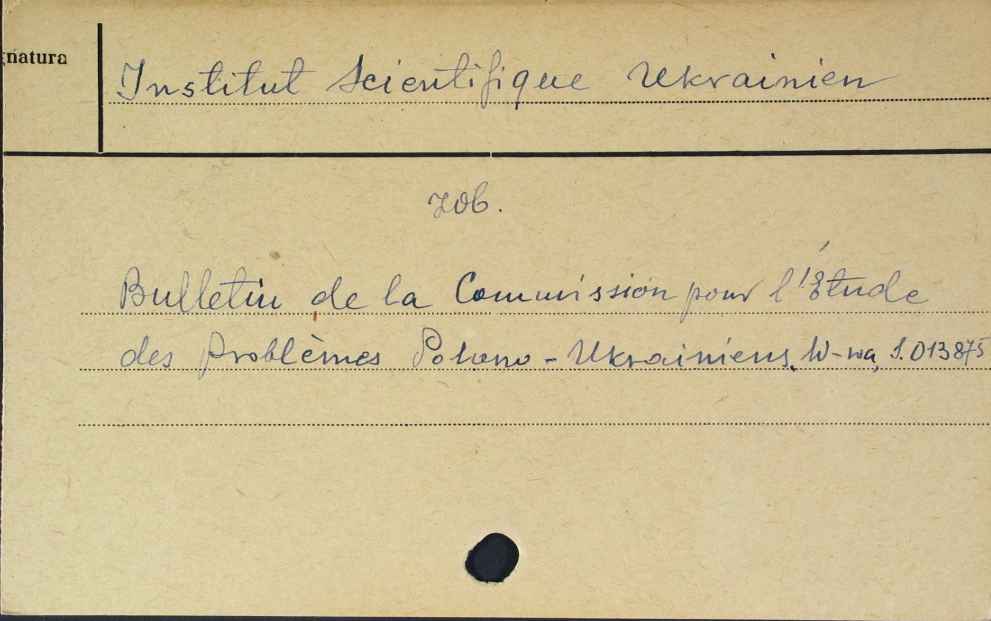 natura
Institut Scientifique Ukrainien
zob.
Bulletin de la Commission pour l'Étude
des Problèmes Polono-Ukrainiens. W-wa, S.013875